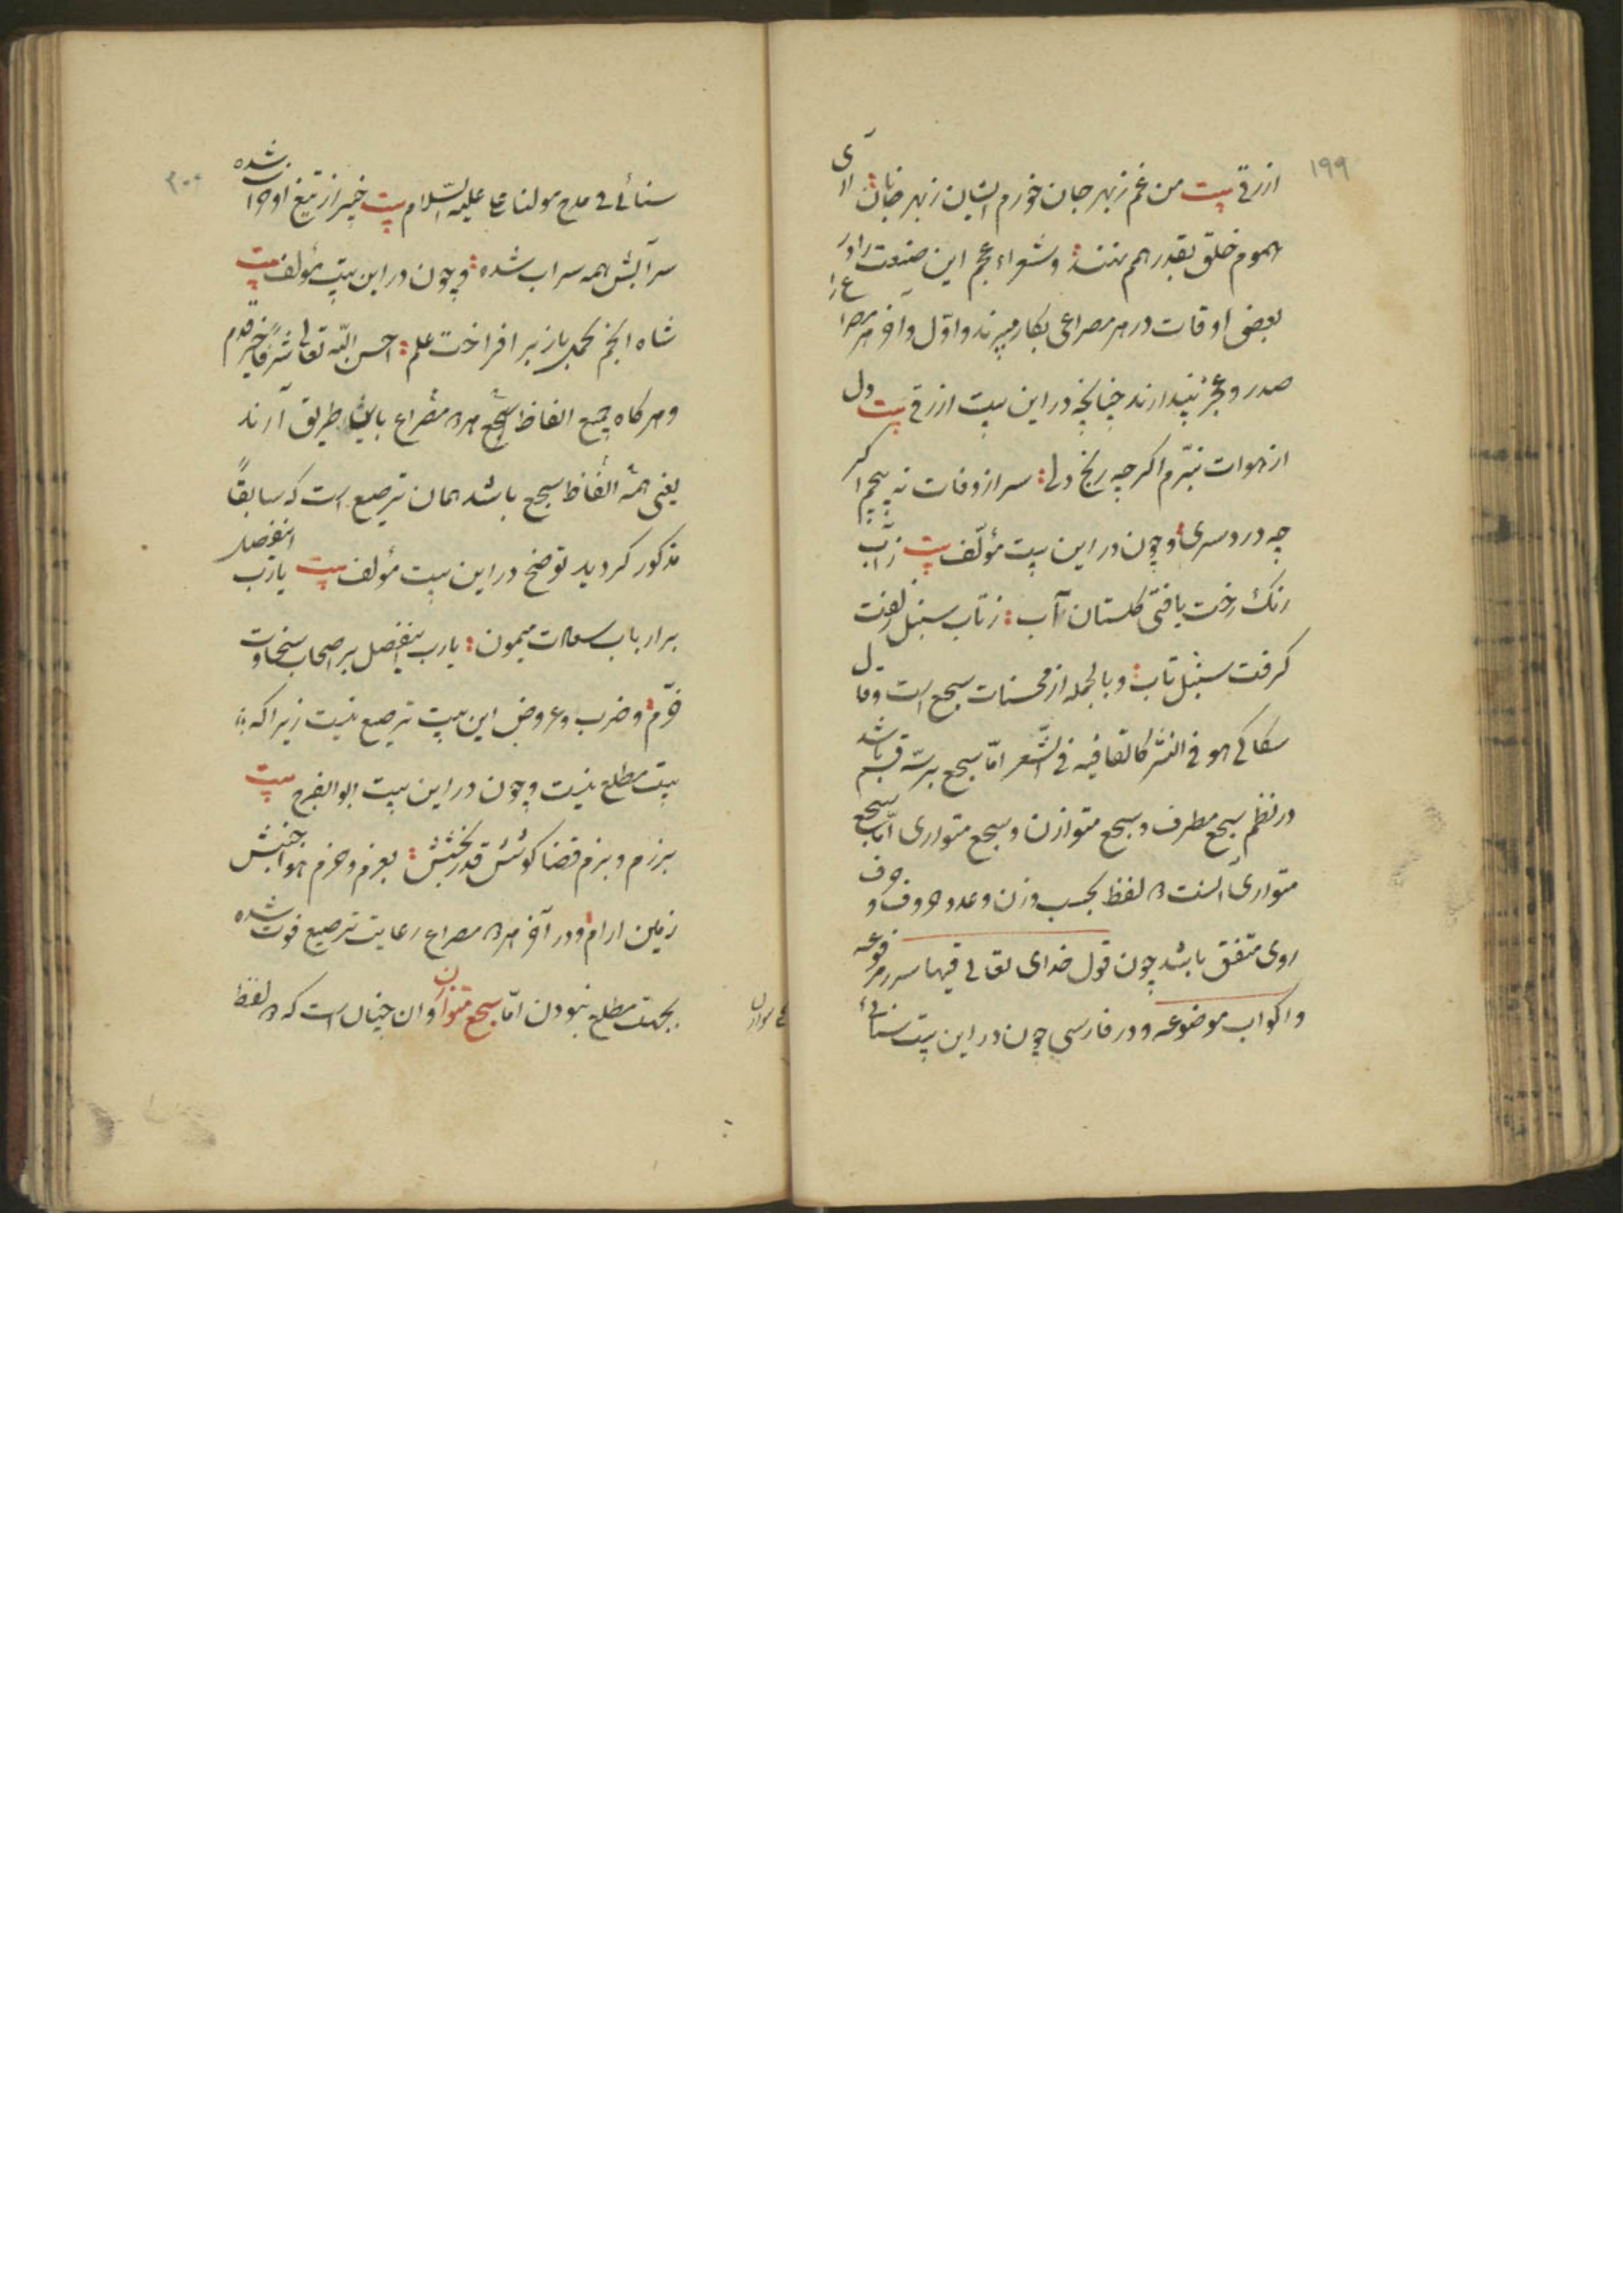 ۱۹۹
ازرقی بیت من غم ز بهر جان خورم ایشان ز بهر جانان آری
هموم خلق بقدر همم نهند و شعراء عجم این صنعت را در
بعضی اوقات در هر مصراعی بکار میبرند و اوّل و آخر هر مصراع را
صدر و عجز پندارند چنانچه در این بیت ازرقی بیت دل
از هوات نبرّم اگر چه رنج دلی سر از وفات نه پیچم اگر
چه درد سری و چون در این بیت مؤلّف بیت ز آب
رنگ رخت یافتی گلستان آب ز تاب سنبل زلفت
گرفت سنبل تاب و بالجمله از محسنات سجع است و قال
سکاکی هو فی النثر کالقافیه فی الشّعر امّا سجع بر سه قسم باشد
در نظم سجع مطرف و سجع متوازن و سجع متوازی امّا سجع
متوازی آنست که دو لفظ بحسب وزن و عدد حروف و حرف
روی متفق باشد چون قول خدای تعالی فیها سرر مرفوعه
و اکواب موضوعه و در فارسی چون در این بیت سنائی
۲۰۰
سنائی فی مدح مولنا علی علیه السّلام بیت خیبر از تیغ او خراب شده
سر آبش همه سراب شده و چون در این بیت مؤلف بیت
شاه انجم بحمل باز بر افراخت علم احسن الله تعالی شرفا خیر قدم
و هر گاه جمیع الفاظ سجع هر دو مصراع باین طریق آرند
یعنی همه الفاظ سجع باشد همان ترصیع است که سابقاً
مذکور گردید توضیح در این بیت مؤلف بیت یا رب
بر ارباب سعادت میمون یا رب بر اصحاب سخاوت
خرّم و ضرب و عروض این بیت ترصیع نیست زیرا که
بیت مطلع نیست و چون در این بیت ابو الفرج بیت
برزم و بزم قضا کوشش قدر بخشش بعزم و حزم هوا جنبش
زمین آرام و در آخر هر دو مصراع رعایت ترصیع فوت شده
بجهت مطلع نبودن امّا سجع متوازن و آن چنان است که دو لفظ